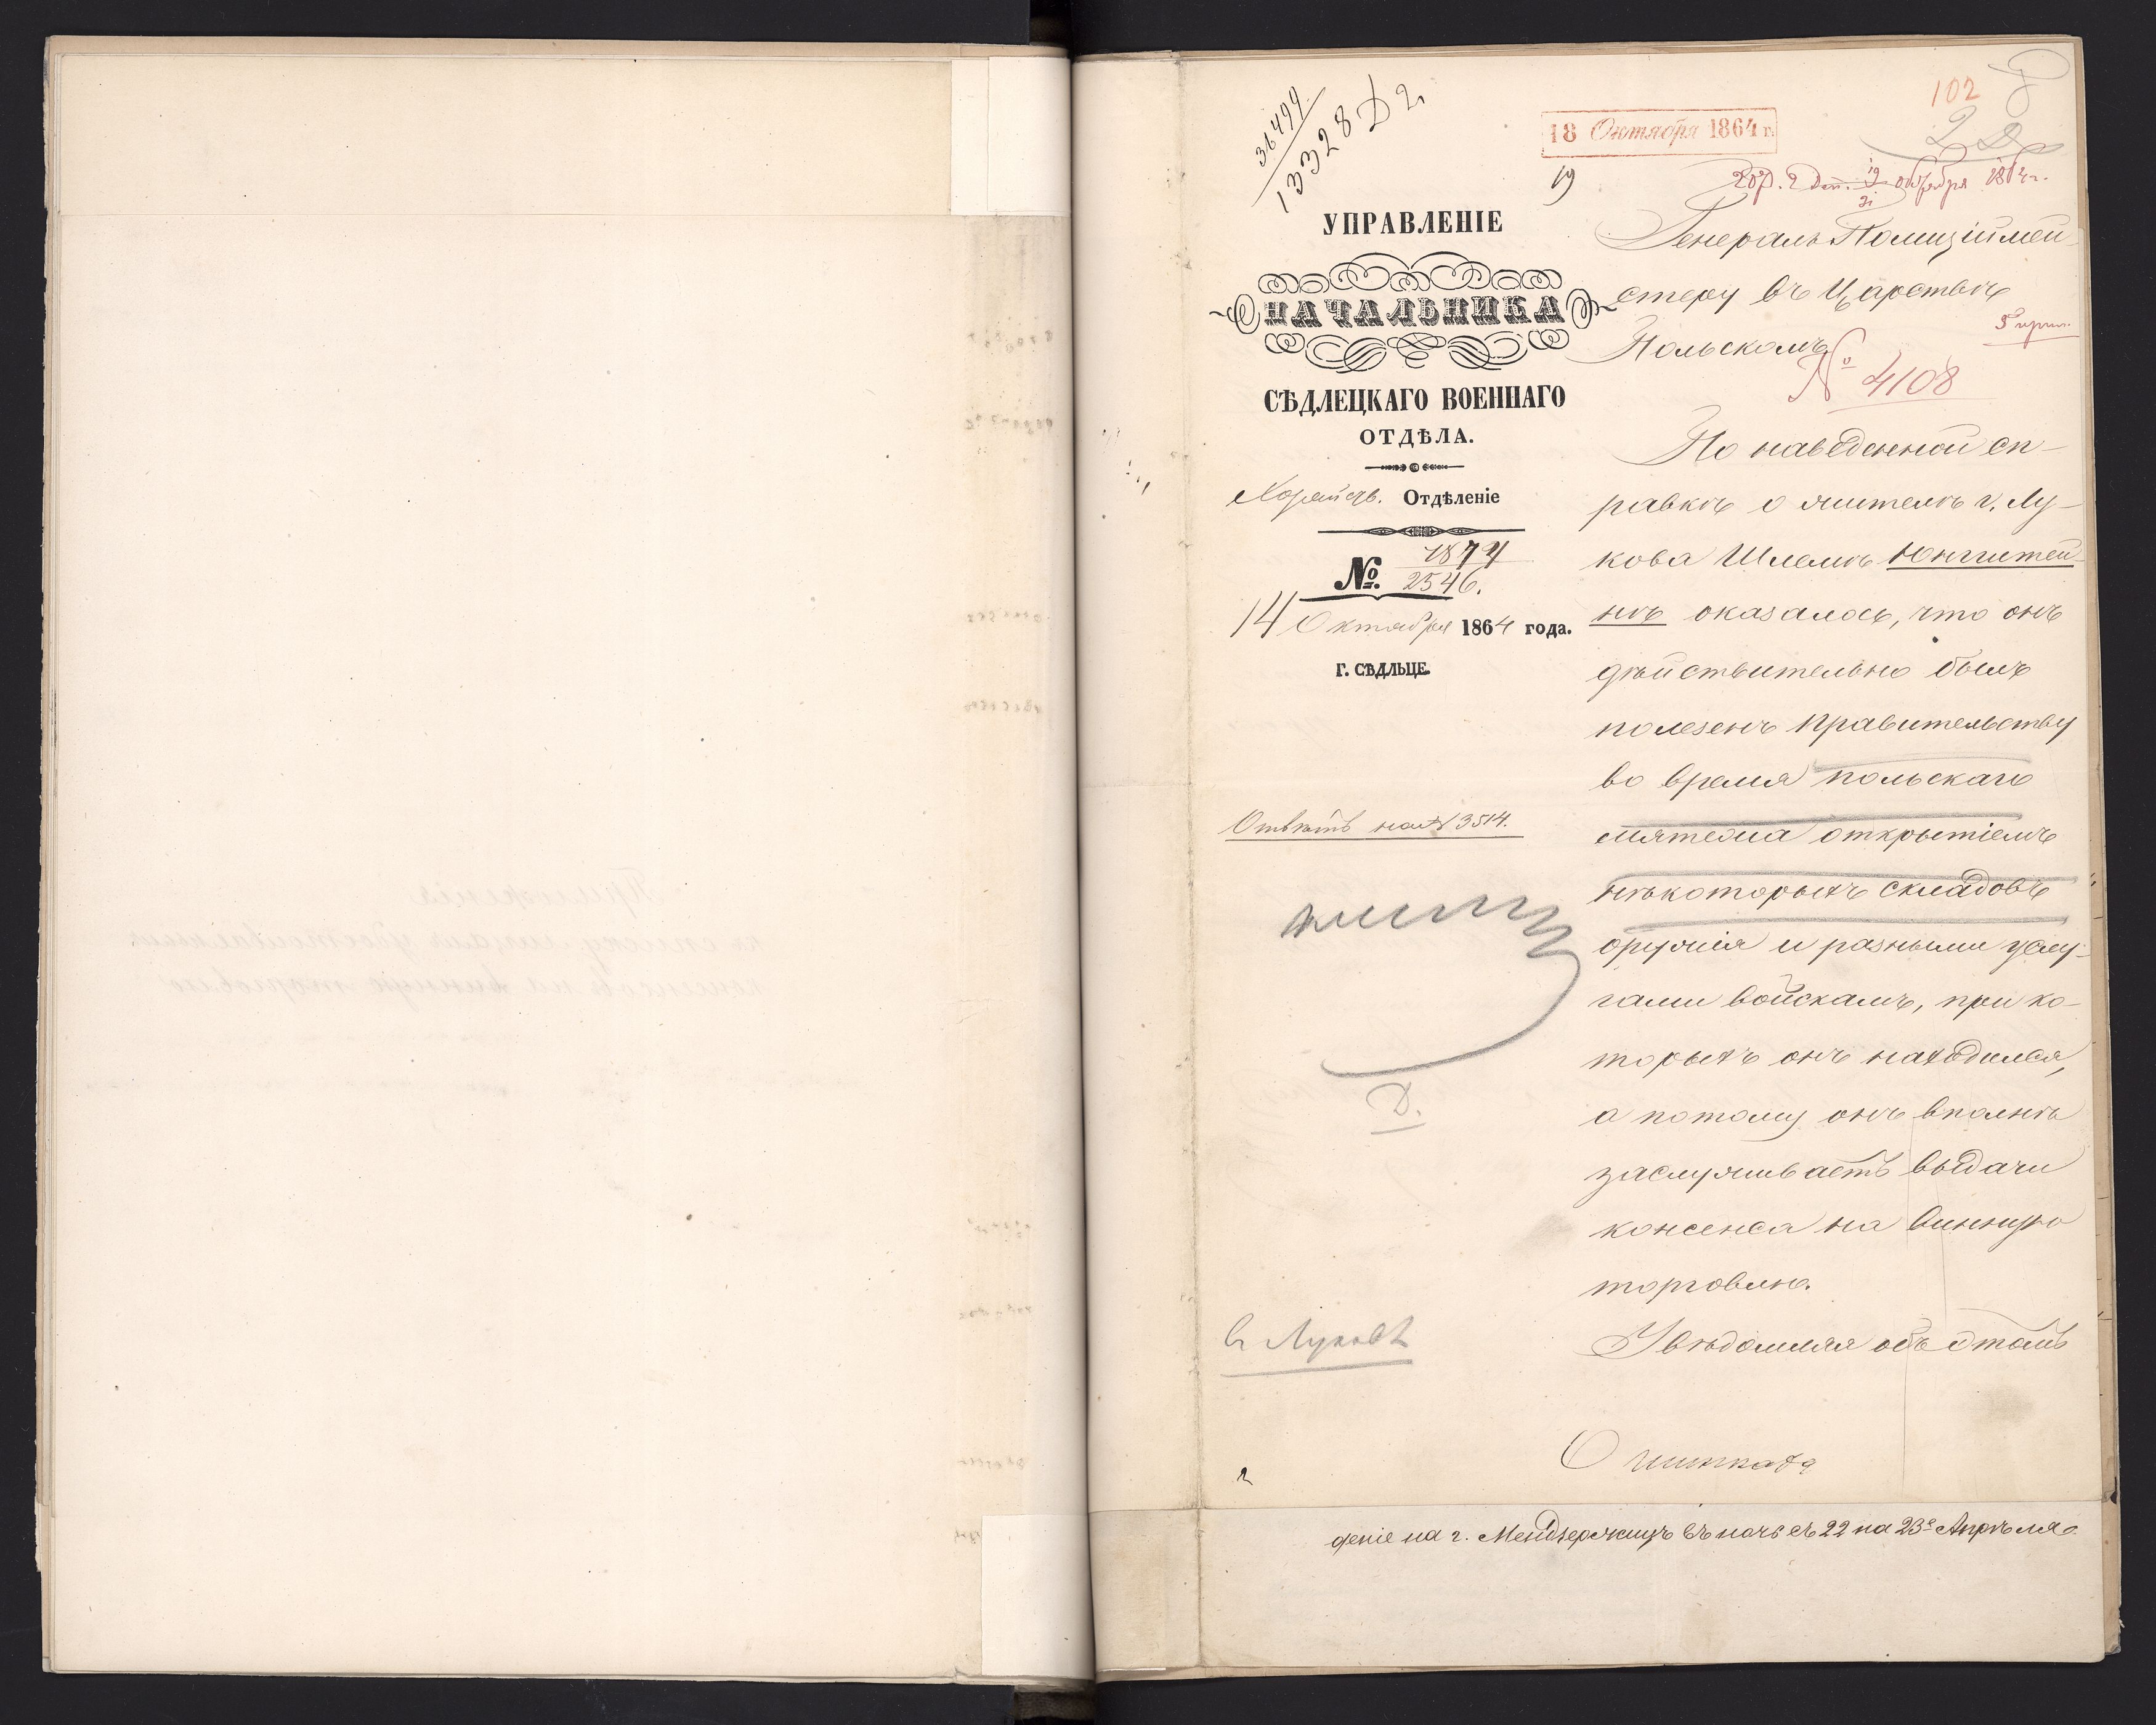 36499
13328 Д 2
18 Октября 1864 г.
19
102
УПРАВЛЕНІЕ
НАЧАЛЬНИКА
СѢДЛЕЦКАГО ВОЕННАГО
ОТДѢЛА.
Отдѣленіе
№. 1874
2546.
14 Октября 1864 года.
Г. СѢДЛЬЦЕ.
Отвѣтъ на № 3514.
Д.
въ Луковѣ
Генералъ Полиціймей-
стеру въ Царствѣ
Польскомъ
5 прил.
№ 4108
По наведенной сп-
равкѣ о жителѣ г. Лу-
кова Шлемѣ Юнгштей-
нѣ оказалось, что онъ
дѣйствительно былъ
полезенъ Правительству
во время польскаго
мятежа открытіемъ
нѣкоторыхъ складовъ
оружія и разными услу-
гами войскамъ, при ко-
торыхъ онъ находился,
а потому онъ вполнѣ
заслуживаетъ выдачи
консенса на винную
торговлю.
Увѣдомляя объ этомъ
деніе на г. Мендзержицъ въ ночь съ 22 на 23е Апрѣля
Приложенія
къ списку лицамъ удостоиваемымъ
консенсовъ на винную торговлю